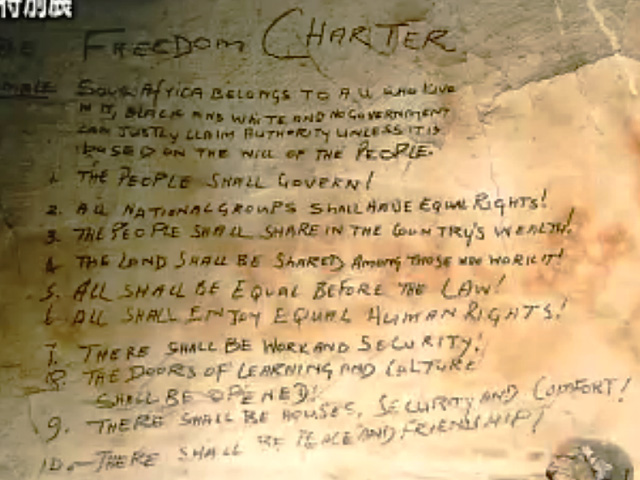 特別展
THE FREEDOM CHARTER
PREAMBLE SOUTH AFRICA BELONGS TO ALL WHO LIVE
IN IT, BLACK AND WHITE AND NO GOVERNMENT
CAN JUSTLY CLAIM AUTHORITY UNLESS IT IS
BASED ON THE WILL OF THE PEOPLE.
1. THE PEOPLE SHALL GOVERN!
2. ALL NATIONAL GROUPS SHALL HAVE EQUAL RIGHTS!
3. THE PEOPLE SHALL SHARE IN THE COUNTRY'S WEALTH!
4. THE LAND SHALL BE SHARED AMONG THOSE WHO WORK IT!
5. ALL SHALL BE EQUAL BEFORE THE LAW!
6. ALL SHALL ENJOY EQUAL HUMAN RIGHTS!
7. THERE SHALL BE WORK AND SECURITY!
8. THE DOORS OF LEARNING AND CULTURE
SHALL BE OPENED!
9. THERE SHALL BE HOUSES, SECURITY AND COMFORT!
10. THERE SHALL BE PEACE AND FRIENDSHIP!